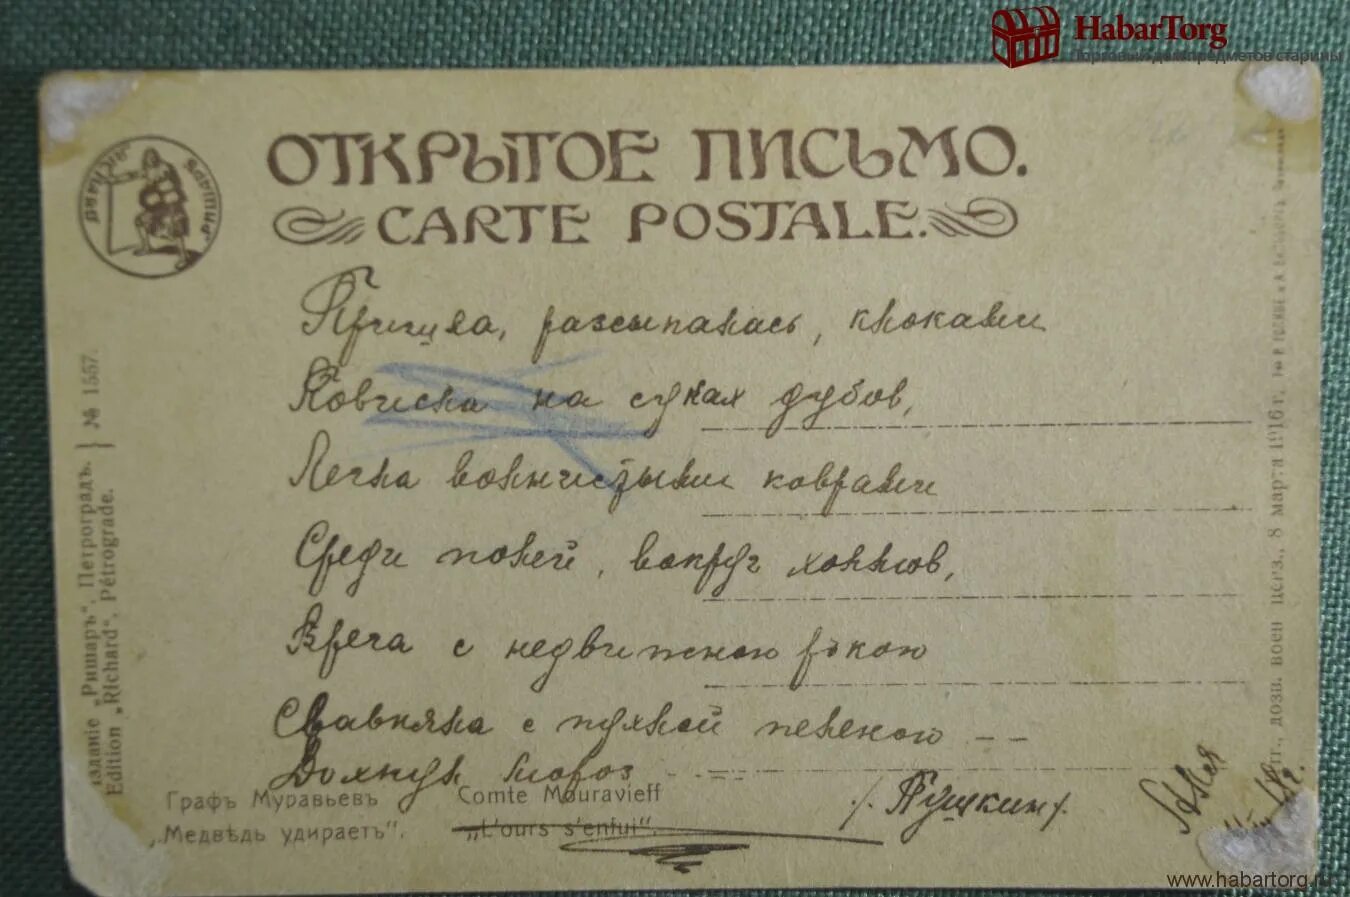 HabarTorg
Торговый дом предметов старины
ОТКРЫТОЕ ПИСЬМО.
CARTE POSTALE.
РИШАРЪ
Пришла, рассыпалась, клоками
Повисла на суках дубов,
Легла волнистыми коврами
Среди полей, вокруг холмов,
Бреча с недвижною рекою
Сравняла с пухлой пеленою --
Дохнул мороз
/. Пушкин/.
Графъ Муравьевъ
Comte Mouravieff
„Медвѣдь удираетъ".
„L'ours s'enfui".
Изданіе „Ришаръ", Петроградъ.
Edition „Richard", Pétrograde.
№ 1557.
дозв. воен ценз., 8 марта 1916 г.
www.habartorg.ru